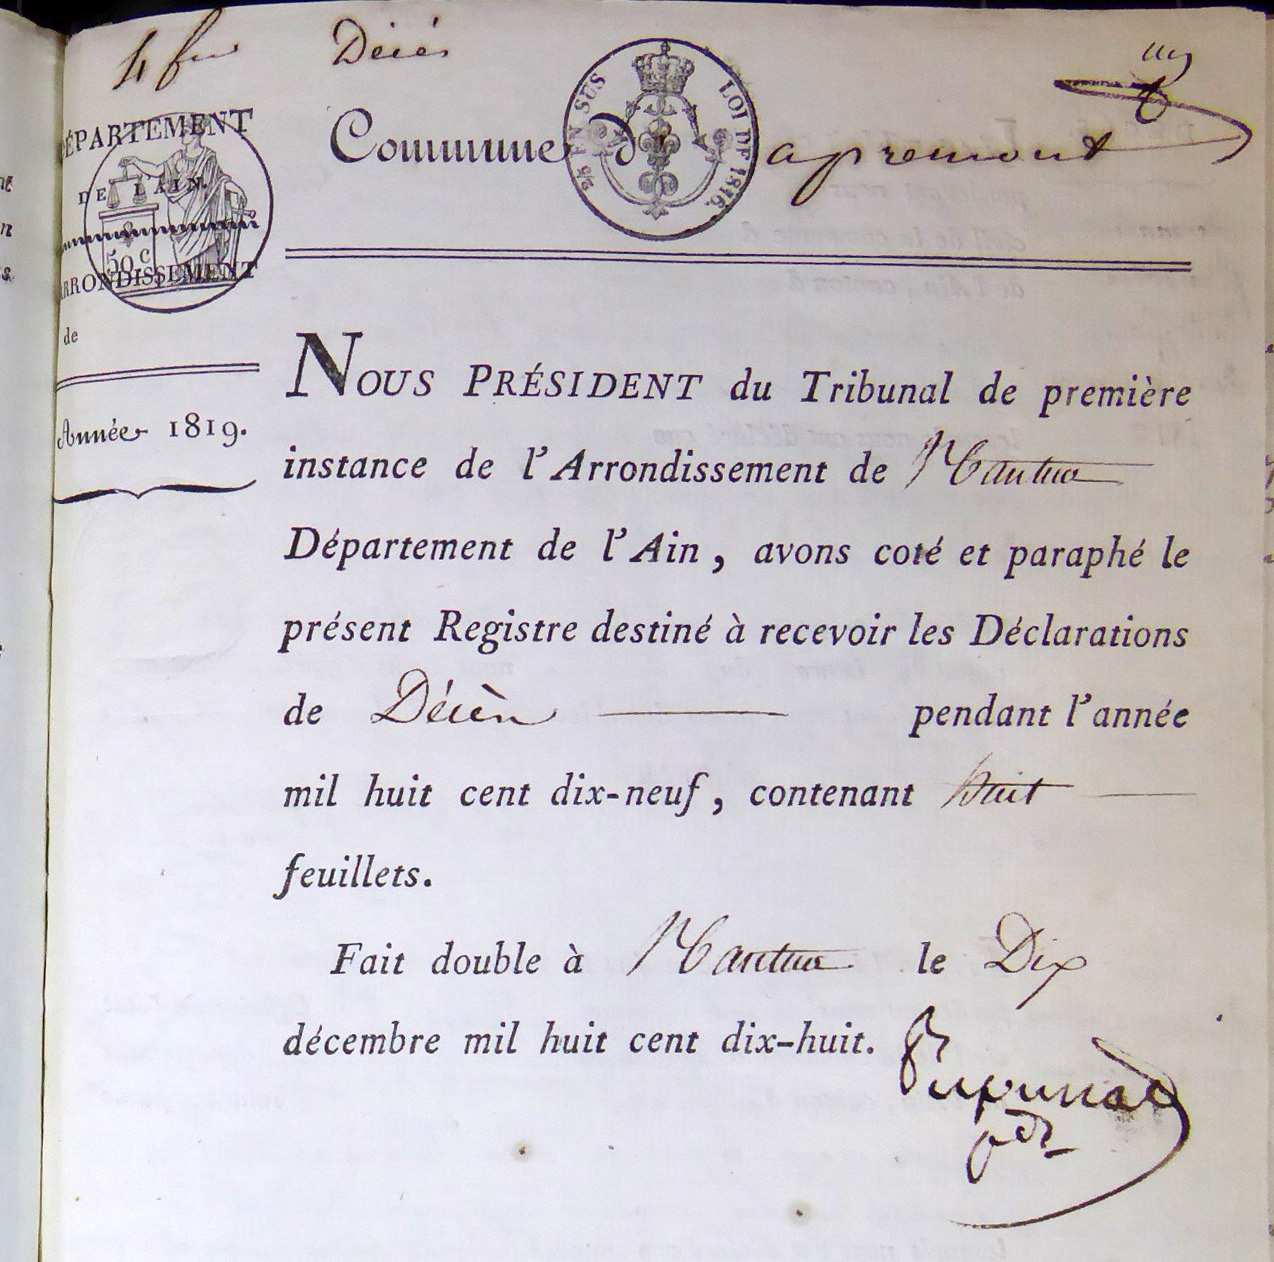 Décès
DÉPARTEMENT
DE L'AIN.
50 C
ARRONDISSEMENT
de
Année 1819.
Commune d'apremont
25 EN SUS
LOI DE 1816.
NOUS PRÉSIDENT du Tribunal de première
instance de l'Arrondissement de Nantua
Département de l'Ain, avons coté et paraphé le
présent Registre destiné à recevoir les Déclarations
de Décès pendant l'année
mil huit cent dix-neuf, contenant huit
feuillets.
Fait double à Nantua le Dix
décembre mil huit cent dix-huit.